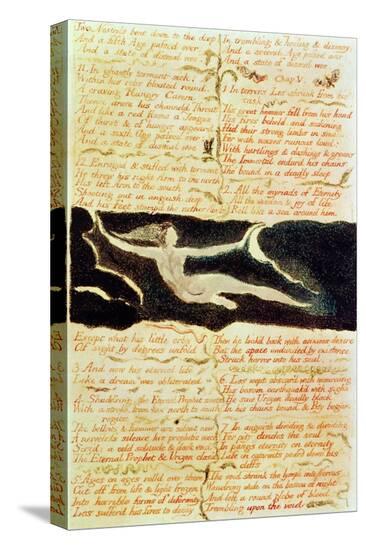 Two Nostrils bent down to the deep
And a fifth Age passed over
And a state of dismal woe.
11. In ghastly torment sick;
Within his ribs bloated round,
A craving Hungry Cavern,
Thence arose his channeld Throat
And like a red flame a Tongue
Of thirst & of hunger appeard
And a sixth Age passed over:
And a state of dismal woe
12. Enraged & stifled with torment
He threw his right Arm to the north
His left Arm to the south
Shooting out in anguish deep
And his Feet stampd the nether Abyss
Except what his little orbs
Of sight by degrees unfold
3. And now his eternal life
Like a dream was obliterated
4. Shuddering, the Eternal Prophet smote
With a stroke, from his north to south
region
The bellows & hammer are silent now
A nerveless silence, his prophetic voice
Siezd; a cold solitude & dark void
The Eternal Prophet & Urizen clos'd
5. Ages on ages rolld over them
Cut off from life & light frozen
Into horrible forms of deformity
Los suffer'd his fires to decay
In trembling & howling & dismay
And a seventh Age passed over:
And a state of dismal woe
Chap V.
1. In terrors Los shrunk from his
task:
His great hammer fell from his hand:
His fires beheld, and sickening,
Hid their strong limbs in smoke
For with noises ruinous loud;
With hurtlings & clashings & groans
The Immortal endur'd his chains,
Tho bound in a deadly sleep
2. All the myriads of Eternity:
All the wisdom & joy of life:
Roll like a sea around him,
Then he look'd back with anxious desire
But the space undivided by existence
Struck horror into his soul.
6. Los wept obscurd with mourning:
His bosom earthquak'd with sighs;
He saw Urizen deadly black,
In his chains bound, & Pity began,
7. In anguish dividing & dividing
For pity divides the soul
In pangs eternity on eternity
Life in cataracts pourd down his
cliffs
The void shrunk the lymph into Nerves
Wand'ring wide on the bosom of night
And left a round globe of blood
Trembling upon the void